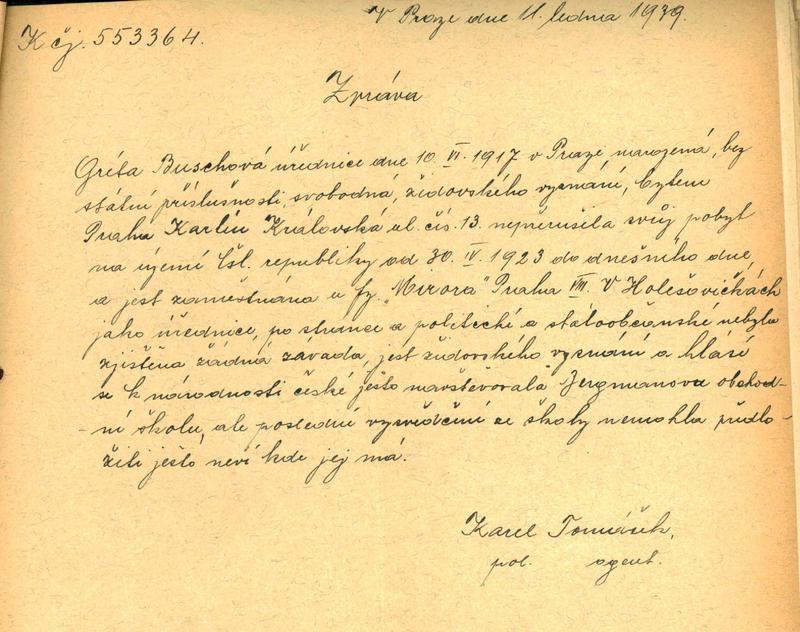 V Praze dne 11. ledna 1939.
K čj. 553364.
Zpráva
Gréta Buschová úřednice dne 10. VI. 1917 v Praze narozená, bez
státní příslušnosti, svobodná, židovského vyznání, bytem
Praha Karlín Královská ul. čís. 13. nepřerušila svůj pobyt
na území Čsl. republiky od 30. IV. 1923 do dnešního dne,
a jest zaměstnána u fy. „Mirora" Praha VIII. V Holešovičkách
jako úřednice, po strance a politické a státoobčanské nebyla
zjištěna žádná závada, jest židovského vyznání a hlásí
se k národnosti české ješto navštěvovala Jergmanova obchod-
- ní školu, ale poslední vysvědčení ze školy nemohla předlo-
žiti ješto neví kde jej má.
Karel Tomášek,
pol. agent.